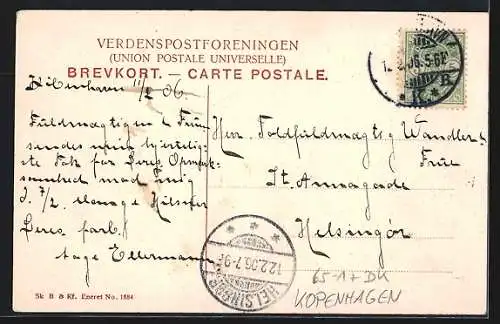 VERDENSPOSTFORENINGEN
(UNION POSTALE UNIVERSELLE)
BREVKORT. — CARTE POSTALE.
Kibenhavn 11/2 06.
Fuldmægtigen & Frue
sendes min hjertelig-
ste Tak for Deres Opmærk-
somhed mod mig
d. 7/2. Mange Hilsner
Deres forb.
Aage Ellermann
Herr Toldfuldmægtig Wandler &
Frue
St. Annagade
Helsingør
12.2.06.7-9F
HELSINGØR
65-17 DK
KOPENHAGEN
Sk. B. & Kf. Eneret No. 1884